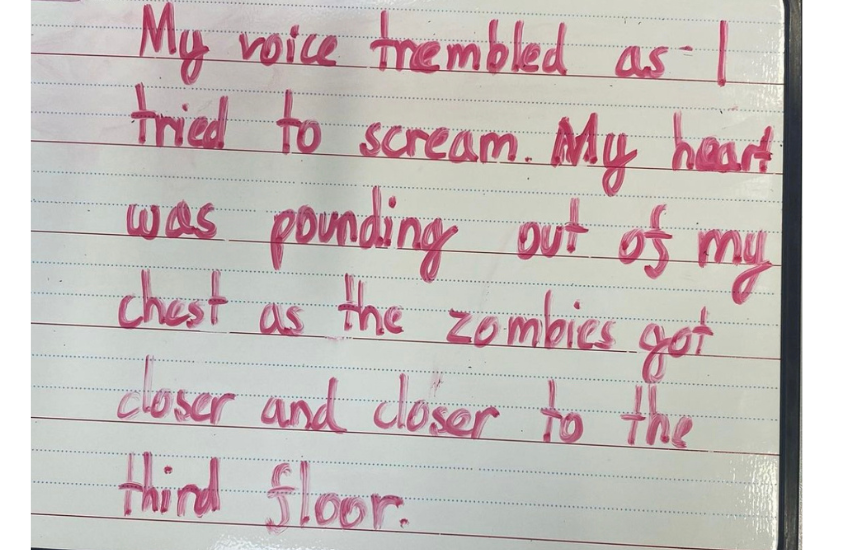 My voice trembled as I
tried to scream. My heart
was pounding out of my
chest as the zombies got
closer and closer to the
third floor.